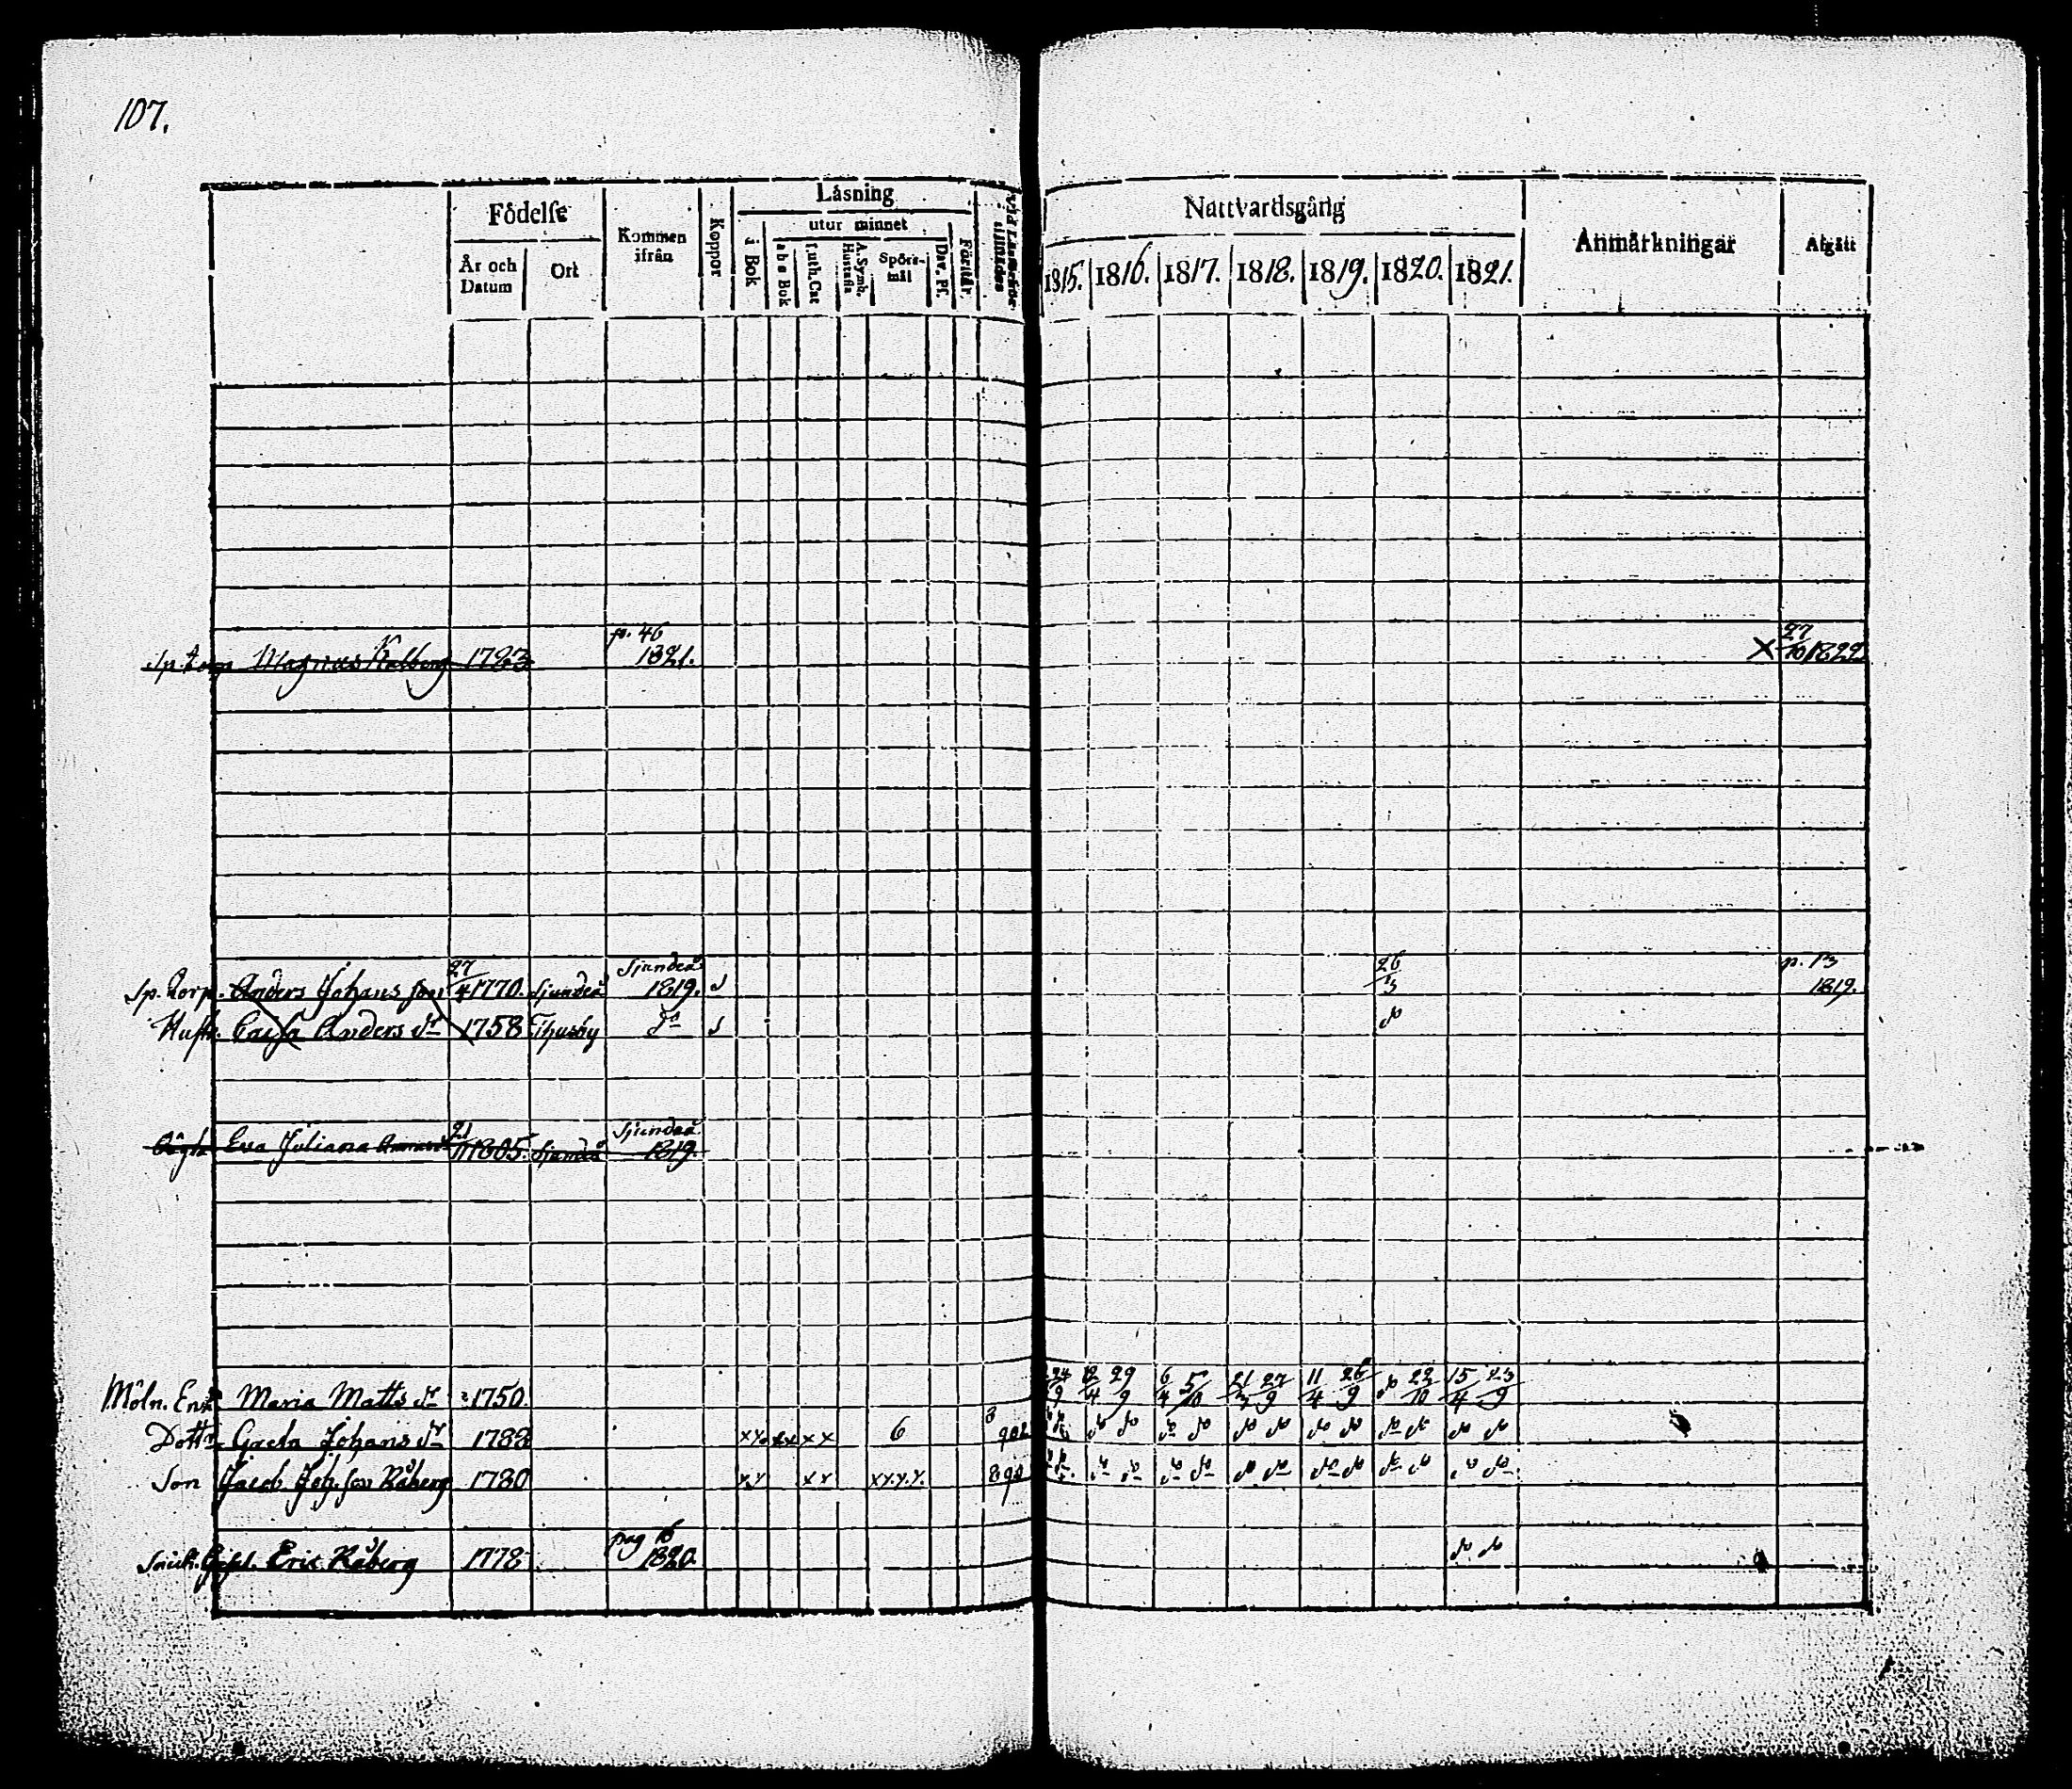 107.
Födelse
År och Datum
Ort
Kommen ifrån
Koppor
Läsning
i Bok
utur minnet
abc Bok
Luth. Cat
A. Symb. Hustafla
Spörsmål
Dav. Ps.
Förstår.
Nattvardsgång
1815. 1816. 1817. 1818. 1819. 1820. 1821.
Anmärkningar
Afgått
Magnus 1783 p. 46 1821. X 27/10 1822
Sp. torp. Anders Johans son 27/4 1770. Sjundeå Sjundeå 1819. 26/3 p. 13 1819.
Hustr. Caisa Anders dr 1758 Thusby do do
Eva Juliana 21/11 1805. Sjundeå Sjundeå 1819.
Möln. Enk. Maria Matts dr 1750. 24/9 12/4 29/9 6/4 5/10 21/3 27/9 11/4 26/9 do 22/10 15/4 23/9
Dottr Greta Johans dr 1788 xx xx xx 6 do do do do do do do do do do do do
Son Jacob Joh. son Råberg 1780 xx xx xx.x.x. do do do do do do do do do do do do
Gesel. Eric Råberg 1778 pag 16 1820. do do